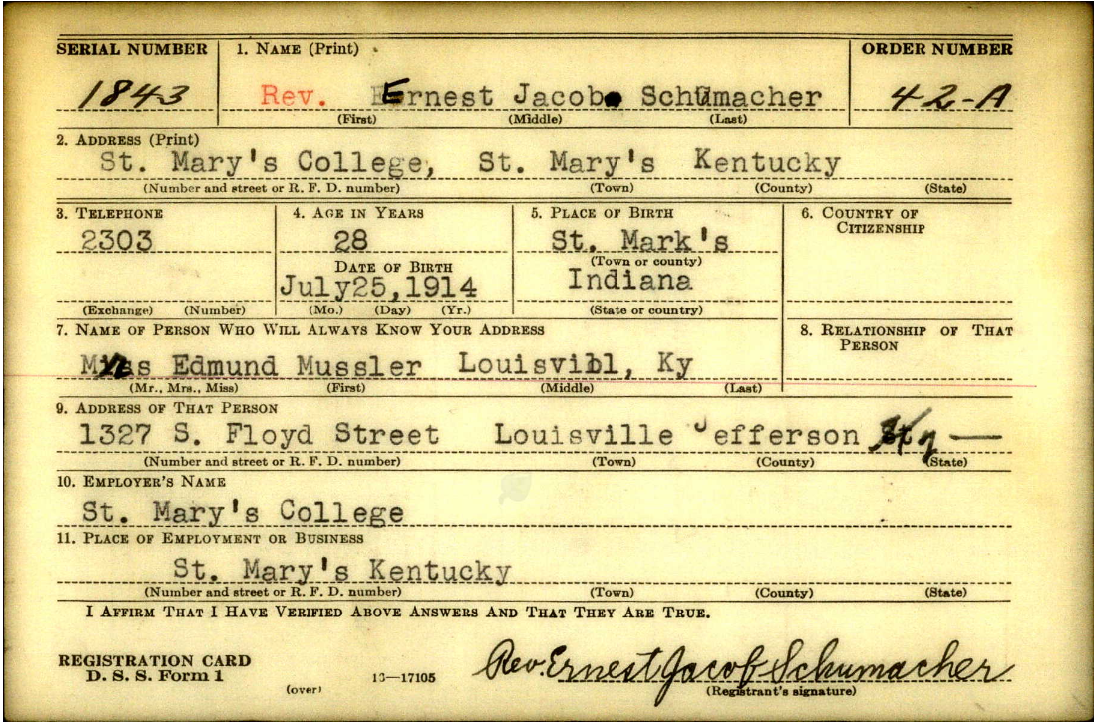 SERIAL NUMBER 1. NAME (Print) ORDER NUMBER
1843 Rev. Ernest Jacob Schumacher 42-A
(First) (Middle) (Last)
2. ADDRESS (Print)
St. Mary's College, St. Mary's Kentucky
(Number and street or R. F. D. number) (Town) (County) (State)
3. TELEPHONE 4. AGE IN YEARS 5. PLACE OF BIRTH 6. COUNTRY OF
CITIZENSHIP
2303 28 St. Mark's
(Town or county)
DATE OF BIRTH
July25,1914 Indiana
(Exchange) (Number) (Mo.) (Day) (Yr.) (State or country)
7. NAME OF PERSON WHO WILL ALWAYS KNOW YOUR ADDRESS 8. RELATIONSHIP OF THAT
PERSON
Edmund Mussler Ky
(Mr., Mrs., Miss) (First) (Middle) (Last)
9. ADDRESS OF THAT PERSON
1327 S. Floyd Street Louisville Jefferson
(Number and street or R. F. D. number) (Town) (County) (State)
10. EMPLOYER'S NAME
St. Mary's College
11. PLACE OF EMPLOYMENT OR BUSINESS
St. Mary's Kentucky
(Number and street or R. F. D. number) (Town) (County) (State)
I AFFIRM THAT I HAVE VERIFIED ABOVE ANSWERS AND THAT THEY ARE TRUE.
REGISTRATION CARD
D. S. S. Form 1 16—17105 Rev. Ernest Jacob Schumacher
(over) (Registrant's signature)